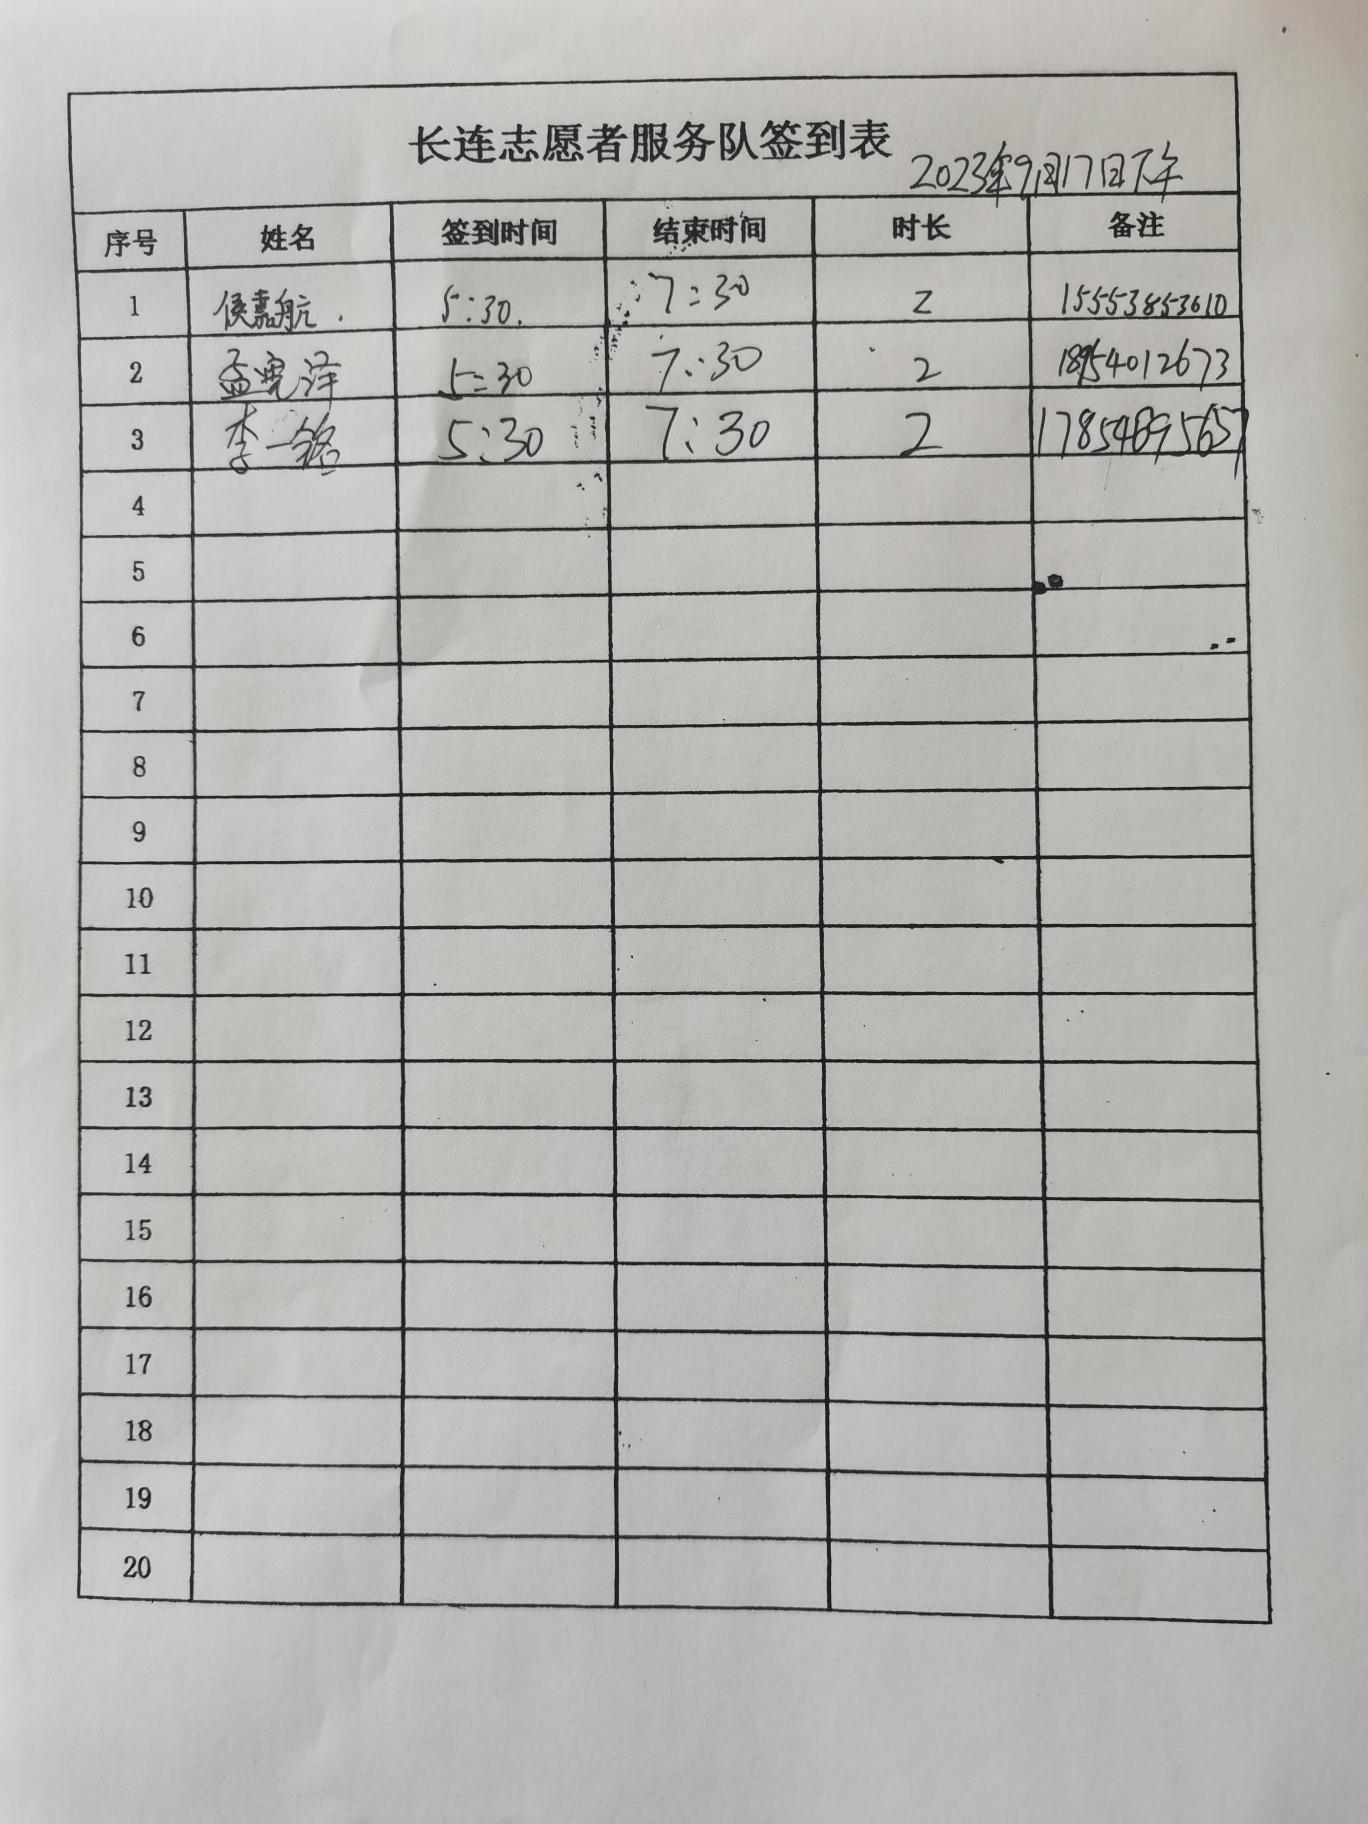 长连志愿者服务队签到表
2023年9月17日下午
序号 姓名 签到时间 结束时间 时长 备注
1 侯嘉航. 5:30. 7:30 2 15553853610
2 孟宪泽 5:30 7:30 2 18954012673
3 李一铭 5:30 7:30 2 17854895657
4
5
6
7
8
9
10
11
12
13
14
15
16
17
18
19
20